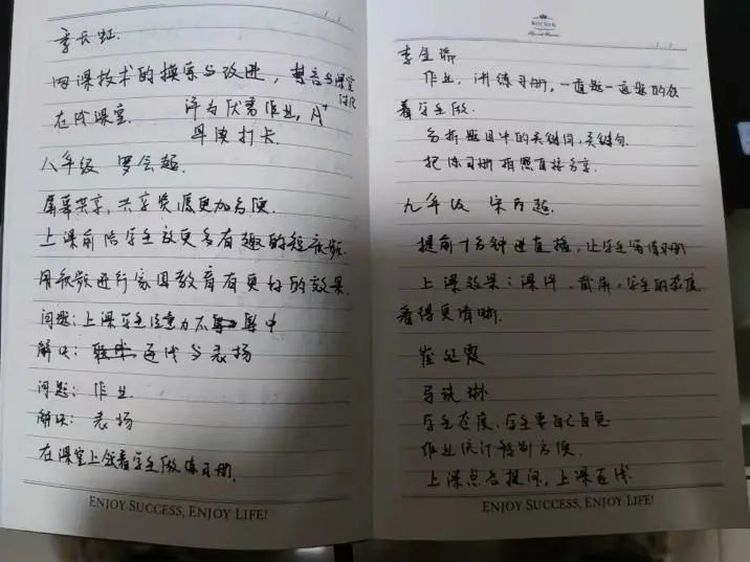 李长虹.
网课技术的摸索与改进,
在线课堂. 评为优秀作业, A+
早读打卡.
八年级 罗会超.
屏幕共享, 共享资源更加方便.
上课前给学生放更多有趣的短视频.
用视频进行家国教育有更好的效果.
问题: 上课学生注意力不集中
解决: 连线与表扬
问题: 作业
解决: 表扬
在课堂上领着学生做练习册.
ENJOY SUCCESS, ENJOY LIFE!
作业, 讲练习册, 一道题一道题的领
着学生做.
分析题目中的关键词, 关键句.
把练习册拍照直接分享.
九年级 宋万超.
提前十分钟进直播, 让学生写练习册
上课效果: 课件、截屏, 学生的态度
看得更清晰.
学生态度, 学生要自己自觉
作业统计特别方便.
上课点名提问, 上课连线
ENJOY SUCCESS, ENJOY LIFE!